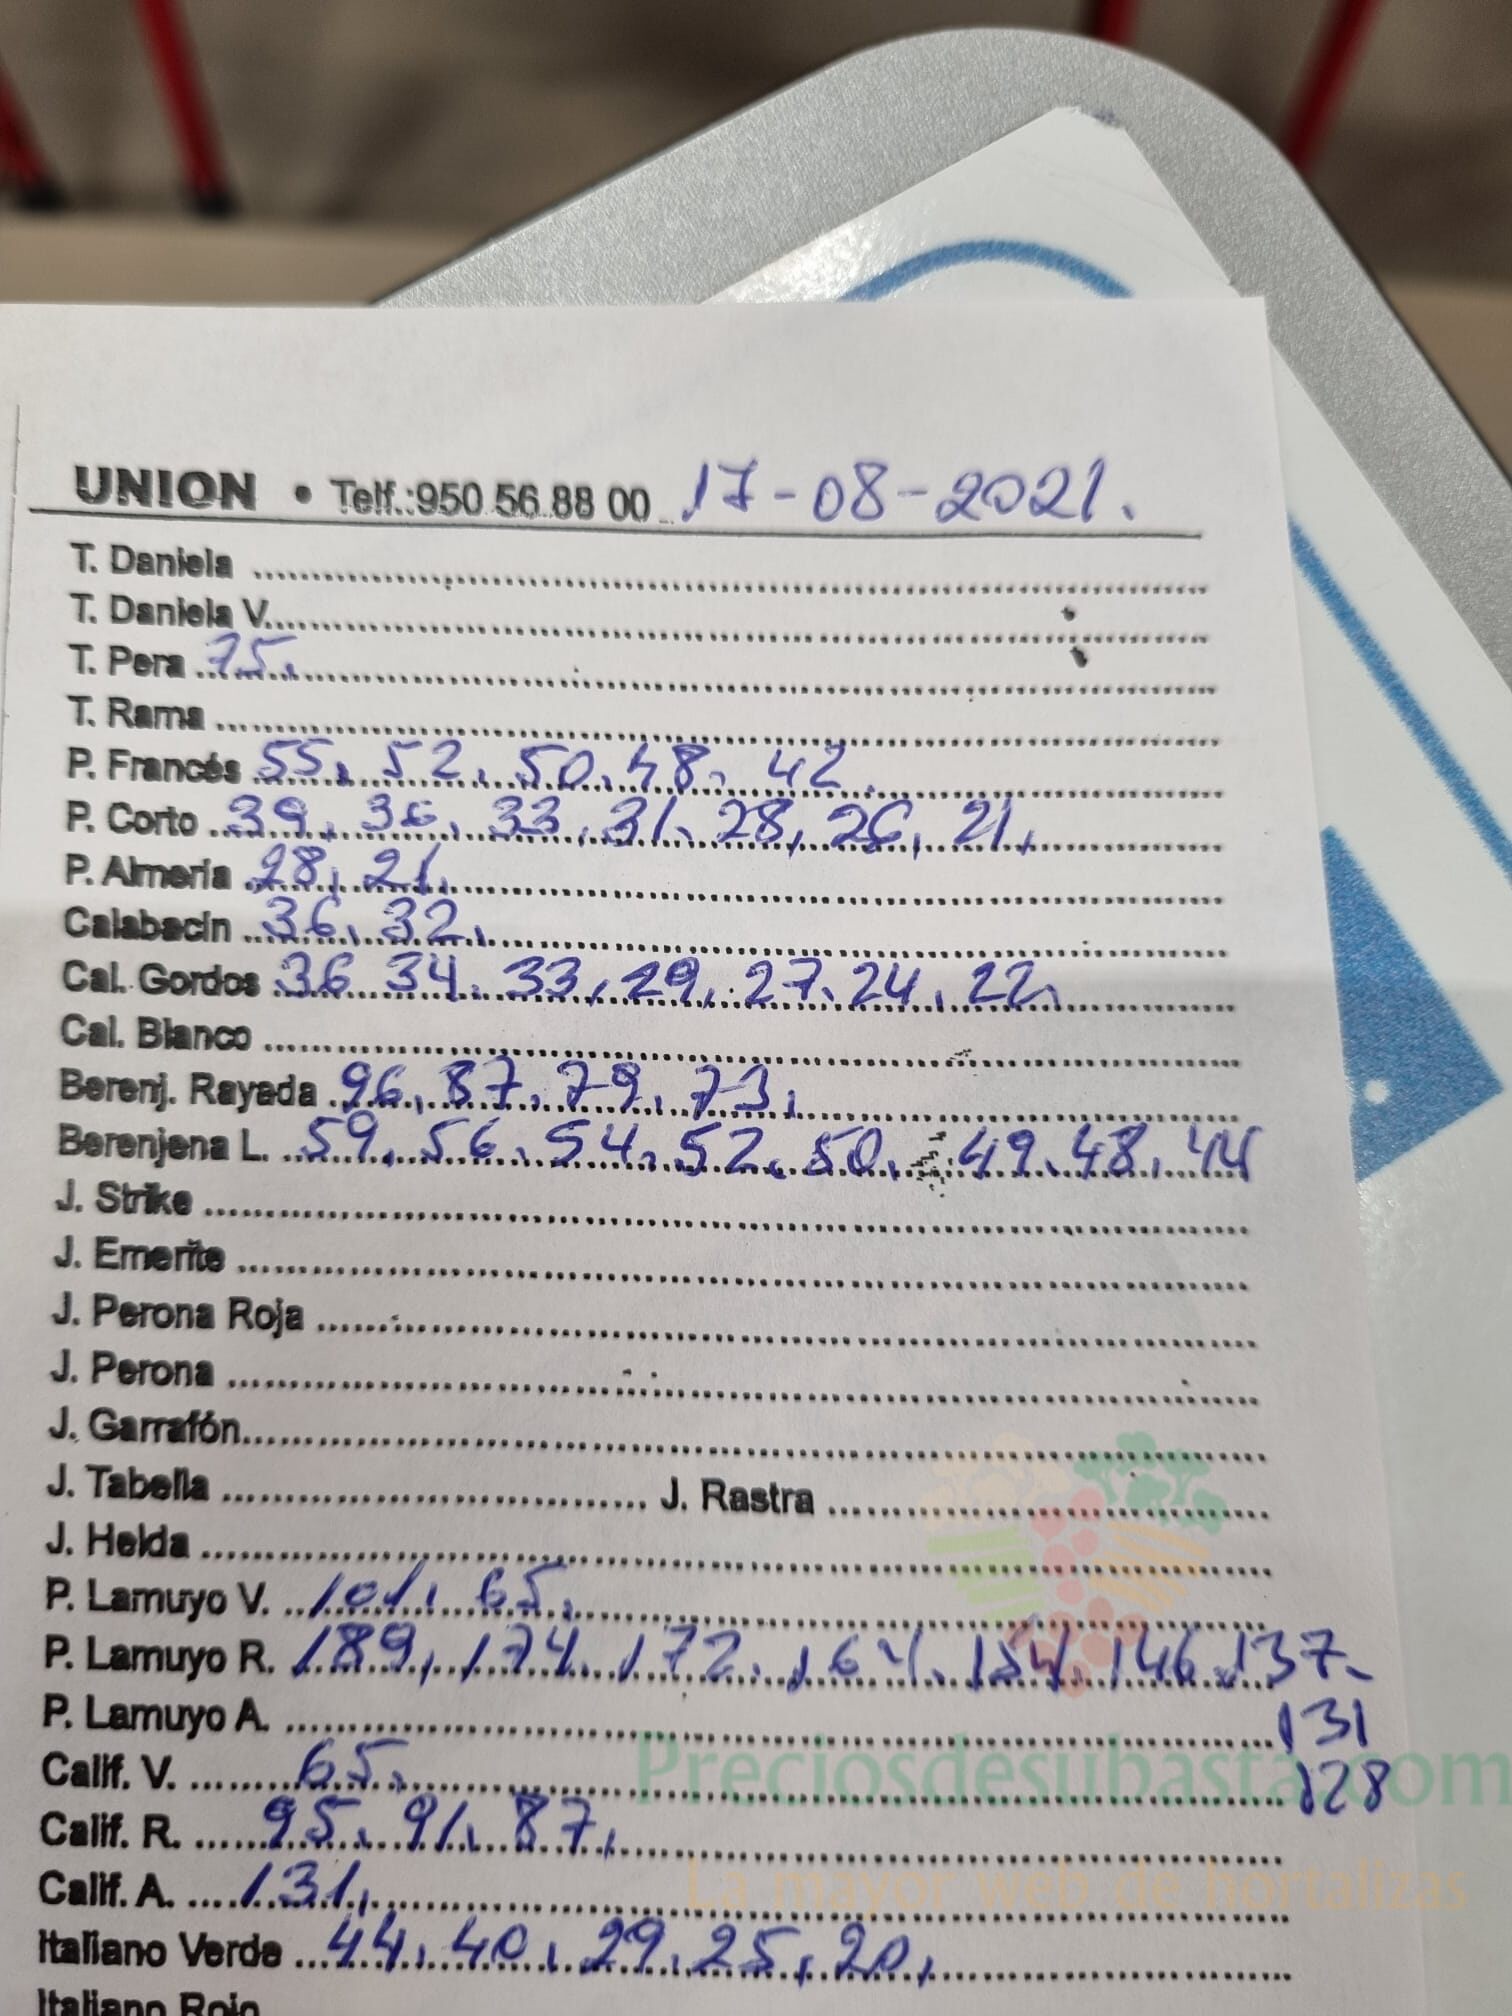 UNION • Telf.:950 56 88 00 17-08-2021.
T. Daniela
T. Daniela V.
T. Pera 75.
T. Rama
P. Francés 55, 52, 50, 48, 42.
P. Corto 39, 36, 33, 31, 28, 26, 21,
P. Almería 28, 21,
Calabacin 36, 32,
Cal. Gordos 36 34, 33, 29, 27, 24, 22,
Cal. Blanco
Berenj. Rayada 96, 87, 79, 73,
Berenjena L. 59, 56, 54, 52, 50, 49, 48, 44
J. Strike
J. Emerite
J. Perona Roja
J. Perona
J. Garrafón
J. Tabella J. Rastra
J. Helda
P. Lamuyo V. 101, 65,
P. Lamuyo R. 189, 174, 172, 164, 154, 146, 137,
P. Lamuyo A. 131
Calif. V. 65, 128
Preciosdesubasta.com
Calif. R. 95, 91, 87,
Calif. A. 131,
La mayor web de hortalizas
Italiano Verde 44, 40, 29, 25, 20,
Italiano Rojo